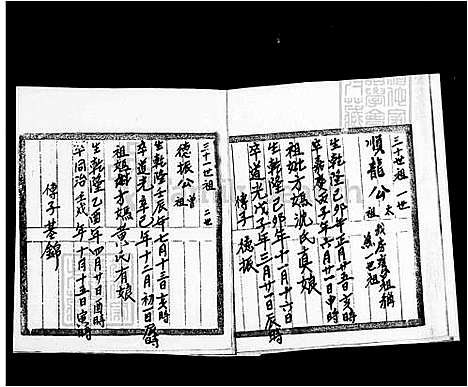 三十世祖 一世
順龍公 太祖
生乾隆己卯年正月廿五日亥時
卒嘉慶丙子年六月廿一日申時
祖妣才嬌沈氏真娘
生乾隆己卯年十一月十六日
卒道光戊子年三月廿一日辰時
傳子 德振
三十一世祖 二世
德振公 曾祖
生乾隆壬辰年七月十三日亥時
卒道光辛巳年十二月初一日辰時
黃氏有娘
生乾隆乙酉年四月廿日酉時
卒同治壬戌年十月十五日寅時
傳子 基錦